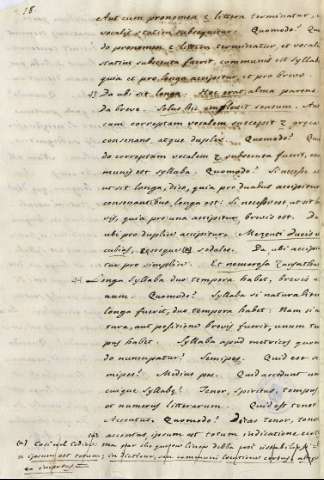 18
Aut cum pronomen c littera terminatur, et
vocalis statim subsequitur. Quomodo? Quan
do pronomen c littera terminatur, et vocalis
statim subsecuta fuerit, communis est syllaba,
quia et pro longa accipitur, et pro brevi.
Da ubi sit longa. Hoc erat alma parens.
Da brevem. Solus hic inflexit sensum. Aut
cum correptam vocalem suscepit z graeca
consonans, atque duplex. Quomodo? Quan
do correptam vocalem z subsecuta fuerit, com
munis est syllaba. Quomodo? Si necesse
ut sit longa, dico, quia pro duabus accipitur
consonantibus, longa est: Si necesse est ut sit bre
vis, quia pro una accipitur, brevis est. Da
ubi pro duplici accipitur. Mezenti ducis
sodales. Da ubi accipi
tur pro simplici. Et nemorosa Zacynthus
Longa Syllaba duo tempora habet, brevis u
num. Quomodo? Syllaba si naturaliter
longa fuerit, duo tempora habet: Nam si na
tura, aut positione brevis fuerit, unum tem
pus habet. Syllaba apud metricos quomo
do nuncupatur? Semipes. Quid est se
mipes? Medius pes. Quid accedunt u
nicuique syllabae? Tenor, spiritus, tempus,
et numerus litterarum. Quid est tenor?
Accentus. Quomodo? tenor,
accentus, ipsum est totum
(a) Così nel codice
ipsum est totum,